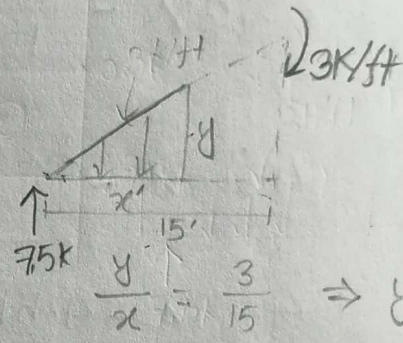 3K/ft
3K/ft
y
x'
15'
75K
y/x = 3/15 ⇒